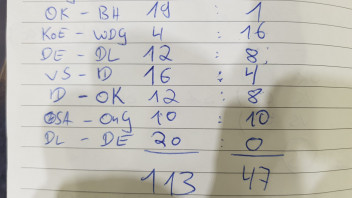 OK - BH 19 : 1
KOE - WDG 4 : 16
DE - DL 12 : 8
VS - ID 16 : 4
ID - OK 12 : 8
GSA - OHG 10 : 10
DL - DE 20 : 0
113 47